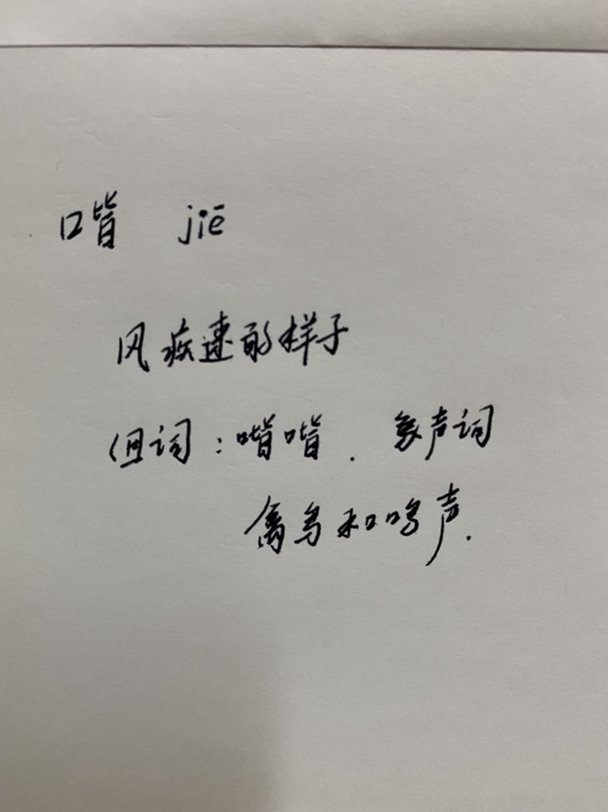 喈 jiē
风疾速的样子
组词：喈喈．象声词
禽鸟和鸣声．